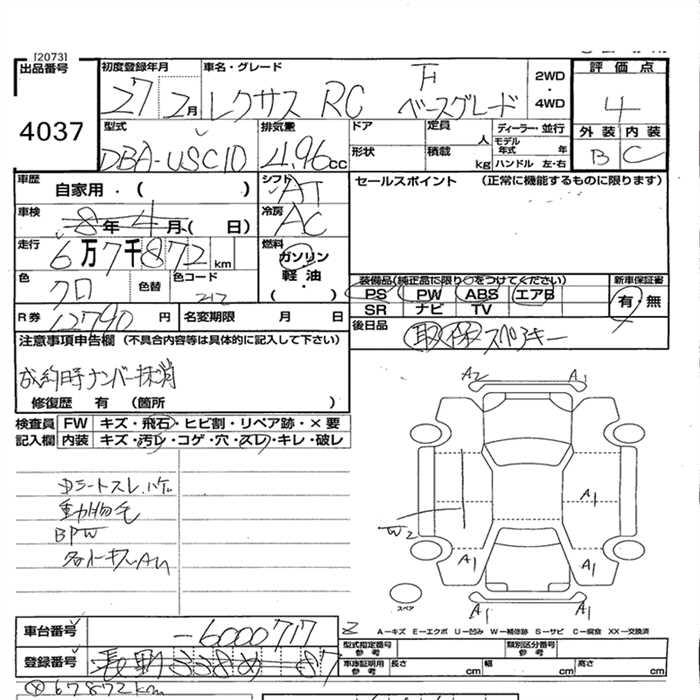 [2073]
出品番号
4037
初度登録年月
27 2月
車名・グレード
レクサス RC F
ベースグレード
2WD
・
4WD
評 価 点
4
外 装 内 装
B C
型式
DBA-USC10
排気量
4.96cc
ドア
形状
定員
人
積載
kg
ディーラー・並行
モデル年式 年
ハンドル 左・右
車歴
自家用・( )
シフト
AT
セールスポイント (正常に機能するものに限ります)
車検
8年4月( 日)
冷房
AC
走行
6万7千872km
燃料
ガソリン
軽 油・
( )
色
クロ
色替
色コード
212
装備品(純正品に限り○をつけてください)
PS PW ABS エアB
SR ナビ TV
新車保証書
有・無
R券
12790円
名変期限 月 日
後日品
取 保 スペアキー
注意事項申告欄 (不具合内容等は具体的に記入して下さい)
成約時ナンバー抹消
修復歴 有 (箇所 )
検査員
記入欄
FW キズ・飛石・ヒビ割・リペア跡・×要
内装 キズ・汚レ・コゲ・穴・スレ・キレ・破レ
動物毛
BPW
A2
A1
A1
W2
A1
A1
A1
A1
スペア
A-キズ E-エクボ U-凹み W-補修跡 S-サビ C-腐食 XX-交換済
車台番号
-6000717
登録番号
型式指定番号
参考
類別区分番号
参考
車庫証明用
参考
長さ cm 幅 cm 高さ cm
67872km